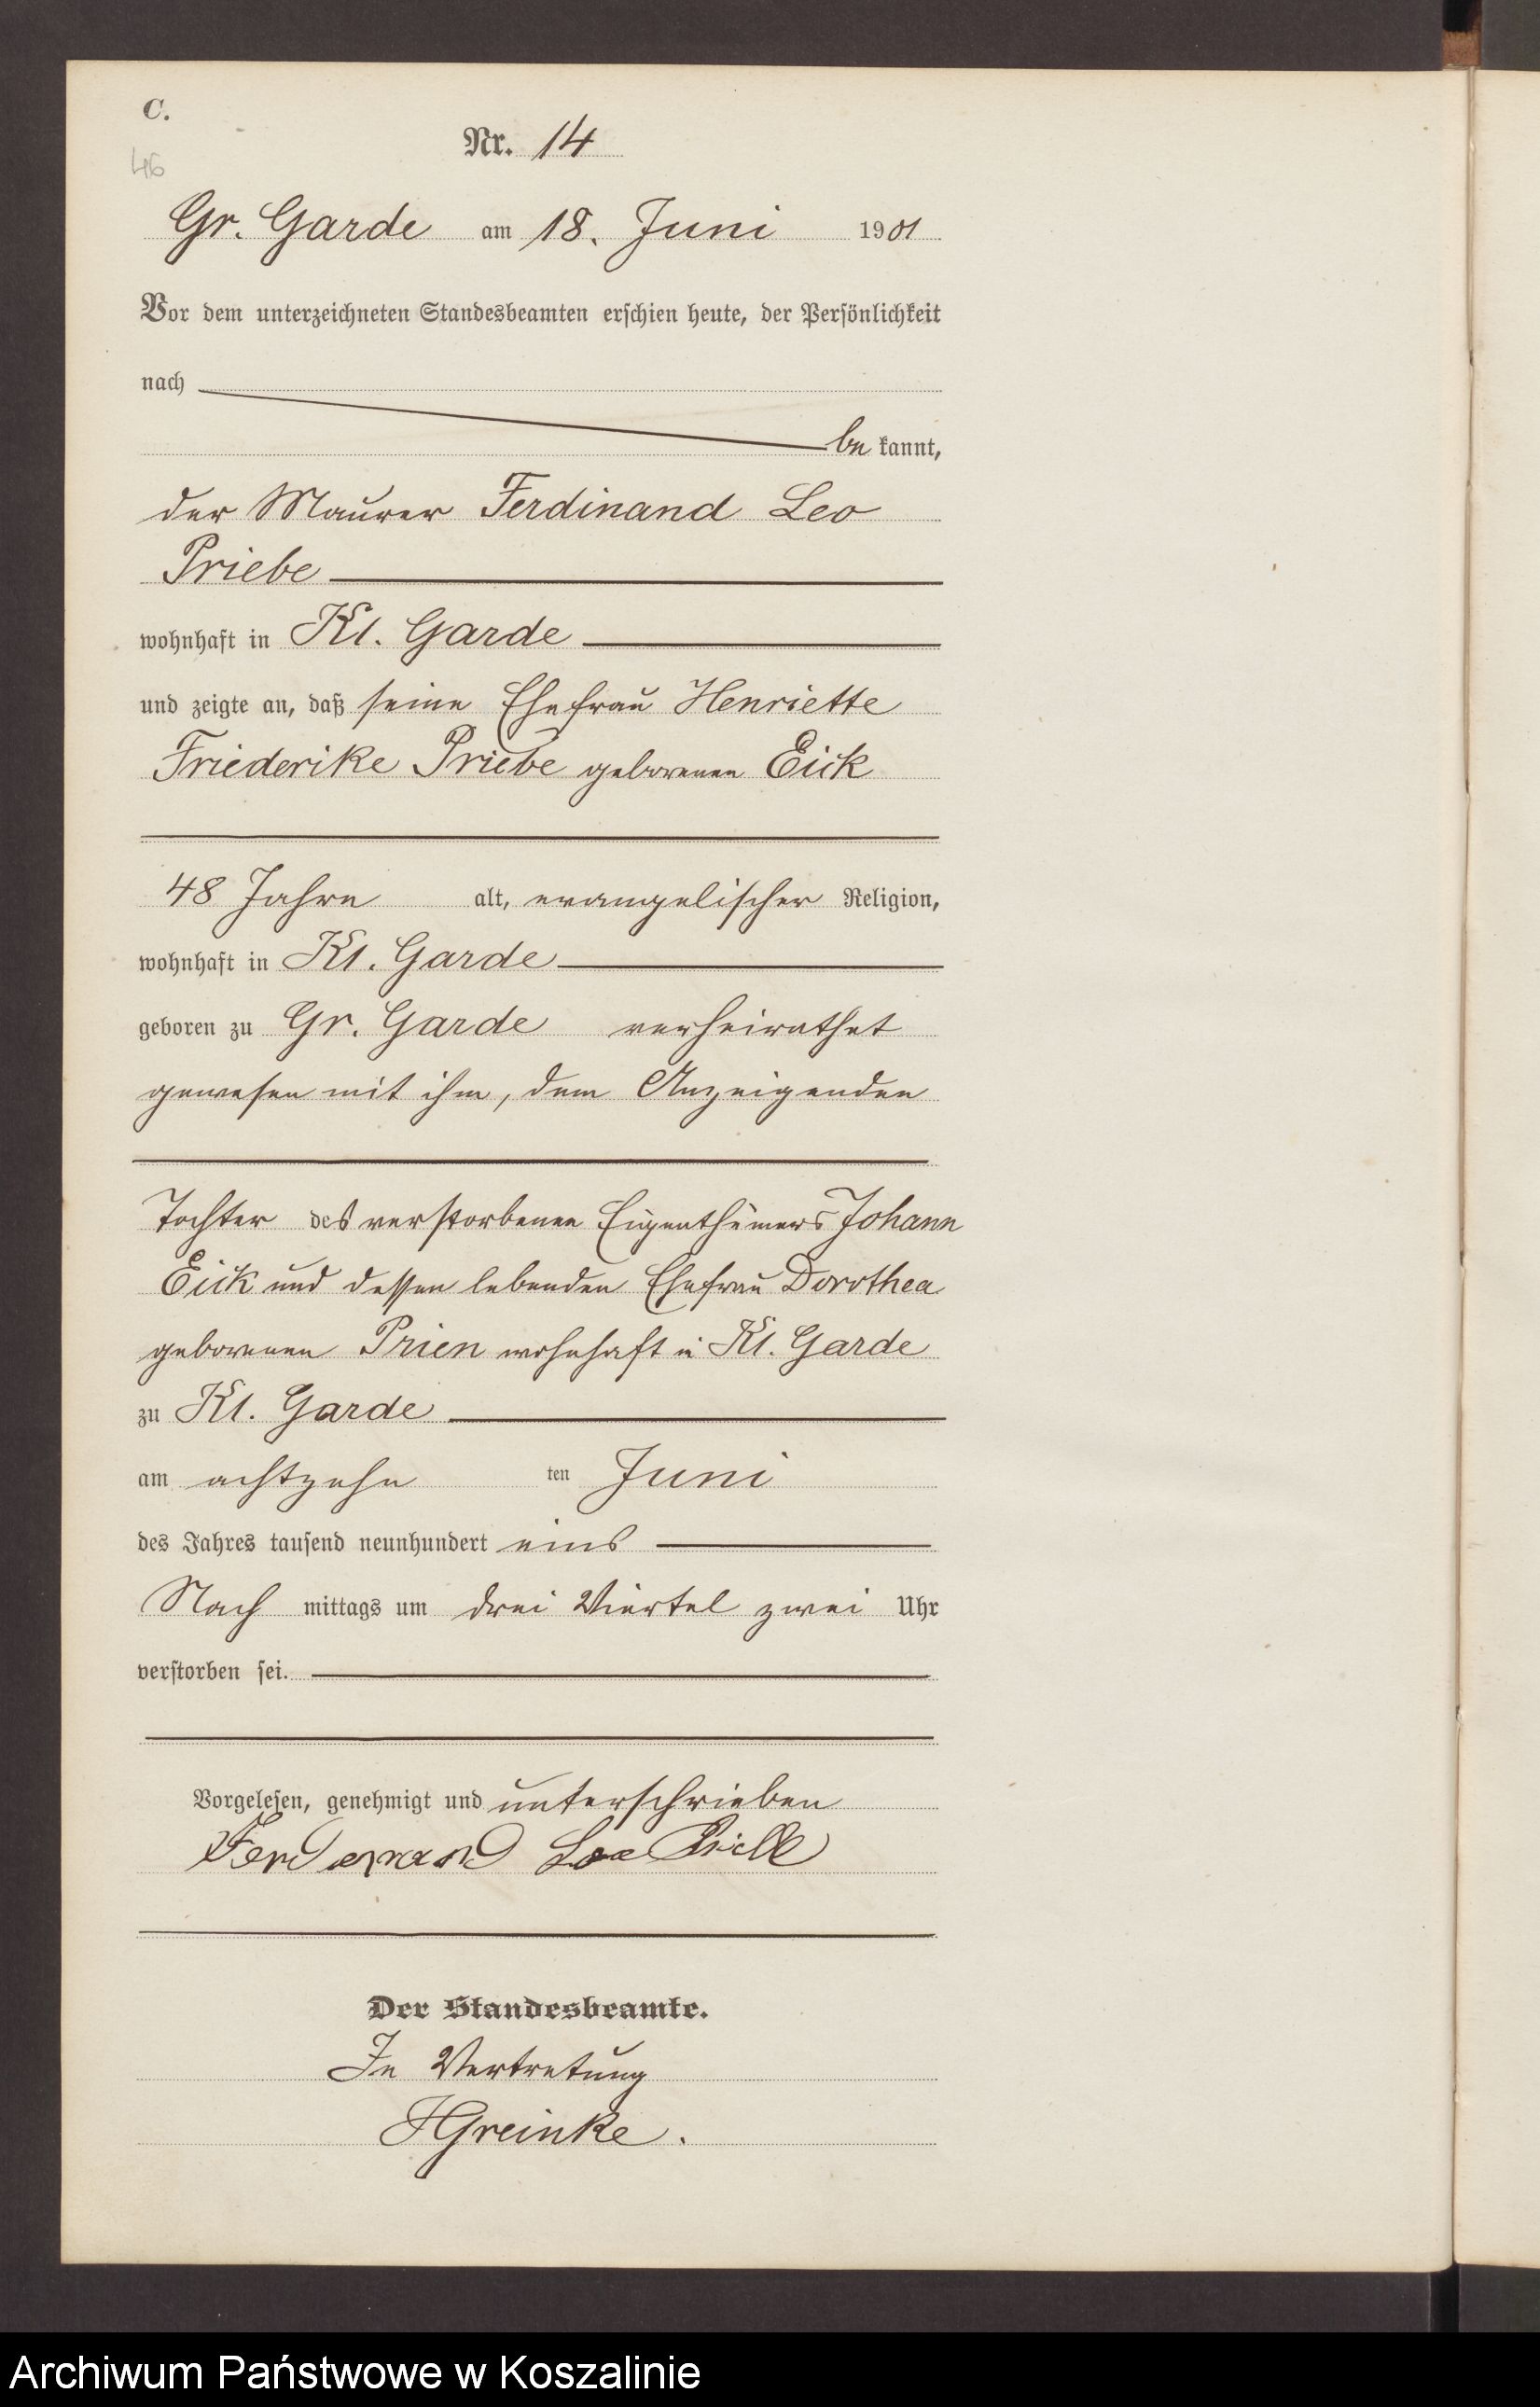 C.
Nr. 14
46
Gr. Garde am 18. Juni 1901
Vor dem unterzeichneten Standesbeamten erschien heute, der Persönlichkeit
nach
be kannt,
der Maurer Ferdinand Leo
Priebe
wohnhaft in Kl. Garde
und zeigte an, daß seine Ehefrau Henriette
Friederike Priebe geborenen Eick
48 Jahre alt, evangelischer Religion,
wohnhaft in Kl. Garde
geboren zu Gr. Garde verheirathet
gewesen mit ihm, dem Anzeigenden
Tochter des verstorbenen Eigenthümers Johann
Eick und dessen lebenden Ehefrau Dorothea
geborenen Prien wohnhaft in Kl. Garde
zu Kl. Garde
am achtzehn ten Juni
des Jahres tausend neunhundert eins
Nach mittags um drei Viertel zwei Uhr
verstorben sei.
Vorgelesen, genehmigt und unterschrieben
Ferdinand Leo
Der Standesbeamte.
In Vertretung
HGreinke.
Archiwum Państwowe w Koszalinie